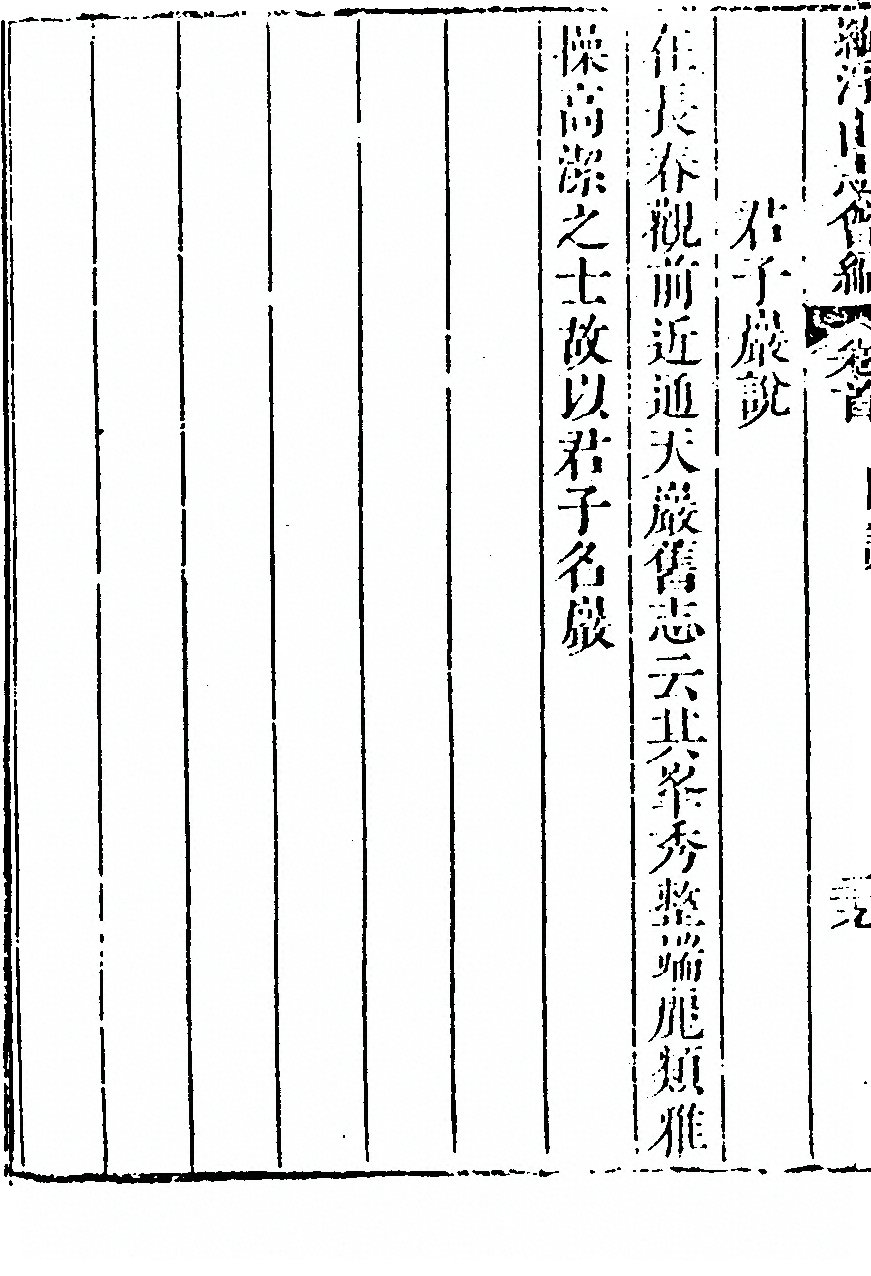 君子巖說
在長春觀前近通天巖舊志云其峯秀整端龐類雅
操高潔之士故以君子名巖